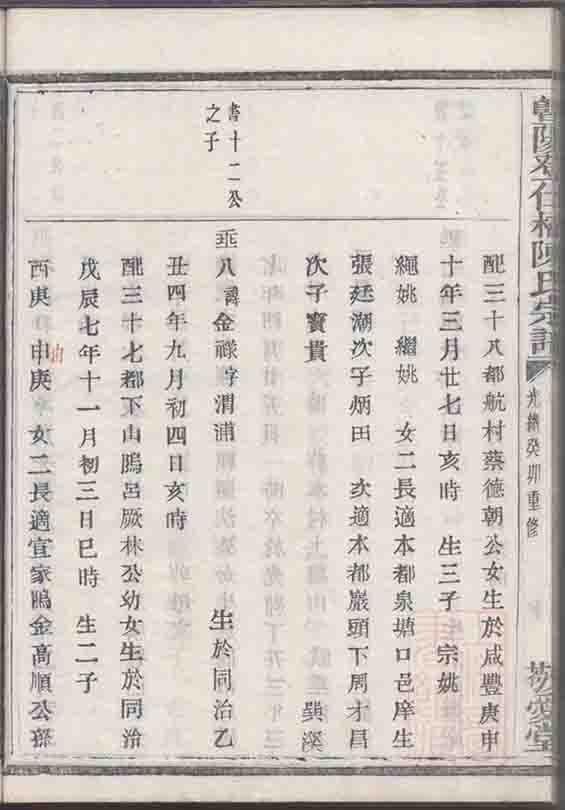 暨陽孝仁橋陳氏宗譜
光緒癸卯重修
敬愛堂
配三十八都航村蔡德朝公女生於咸豐庚申
十年三月廿七日亥時 生三子 宗姚
繩姚 繼姚 女二長適本都泉塘口邑庠生
張廷潮次子炳田 次適本都巖頭下周才昌
次子寶貴 巽溪
書十二公
之子
垂八 諱金祿字渭浦 生於同治乙
丑四年九月初四日亥時
配三十七都下山鴟呂厥林公幼女生於同治
戊辰七年十一月初三日巳時 生二子
酉庚 申庚 女二長適宜家鴟金高順公孫